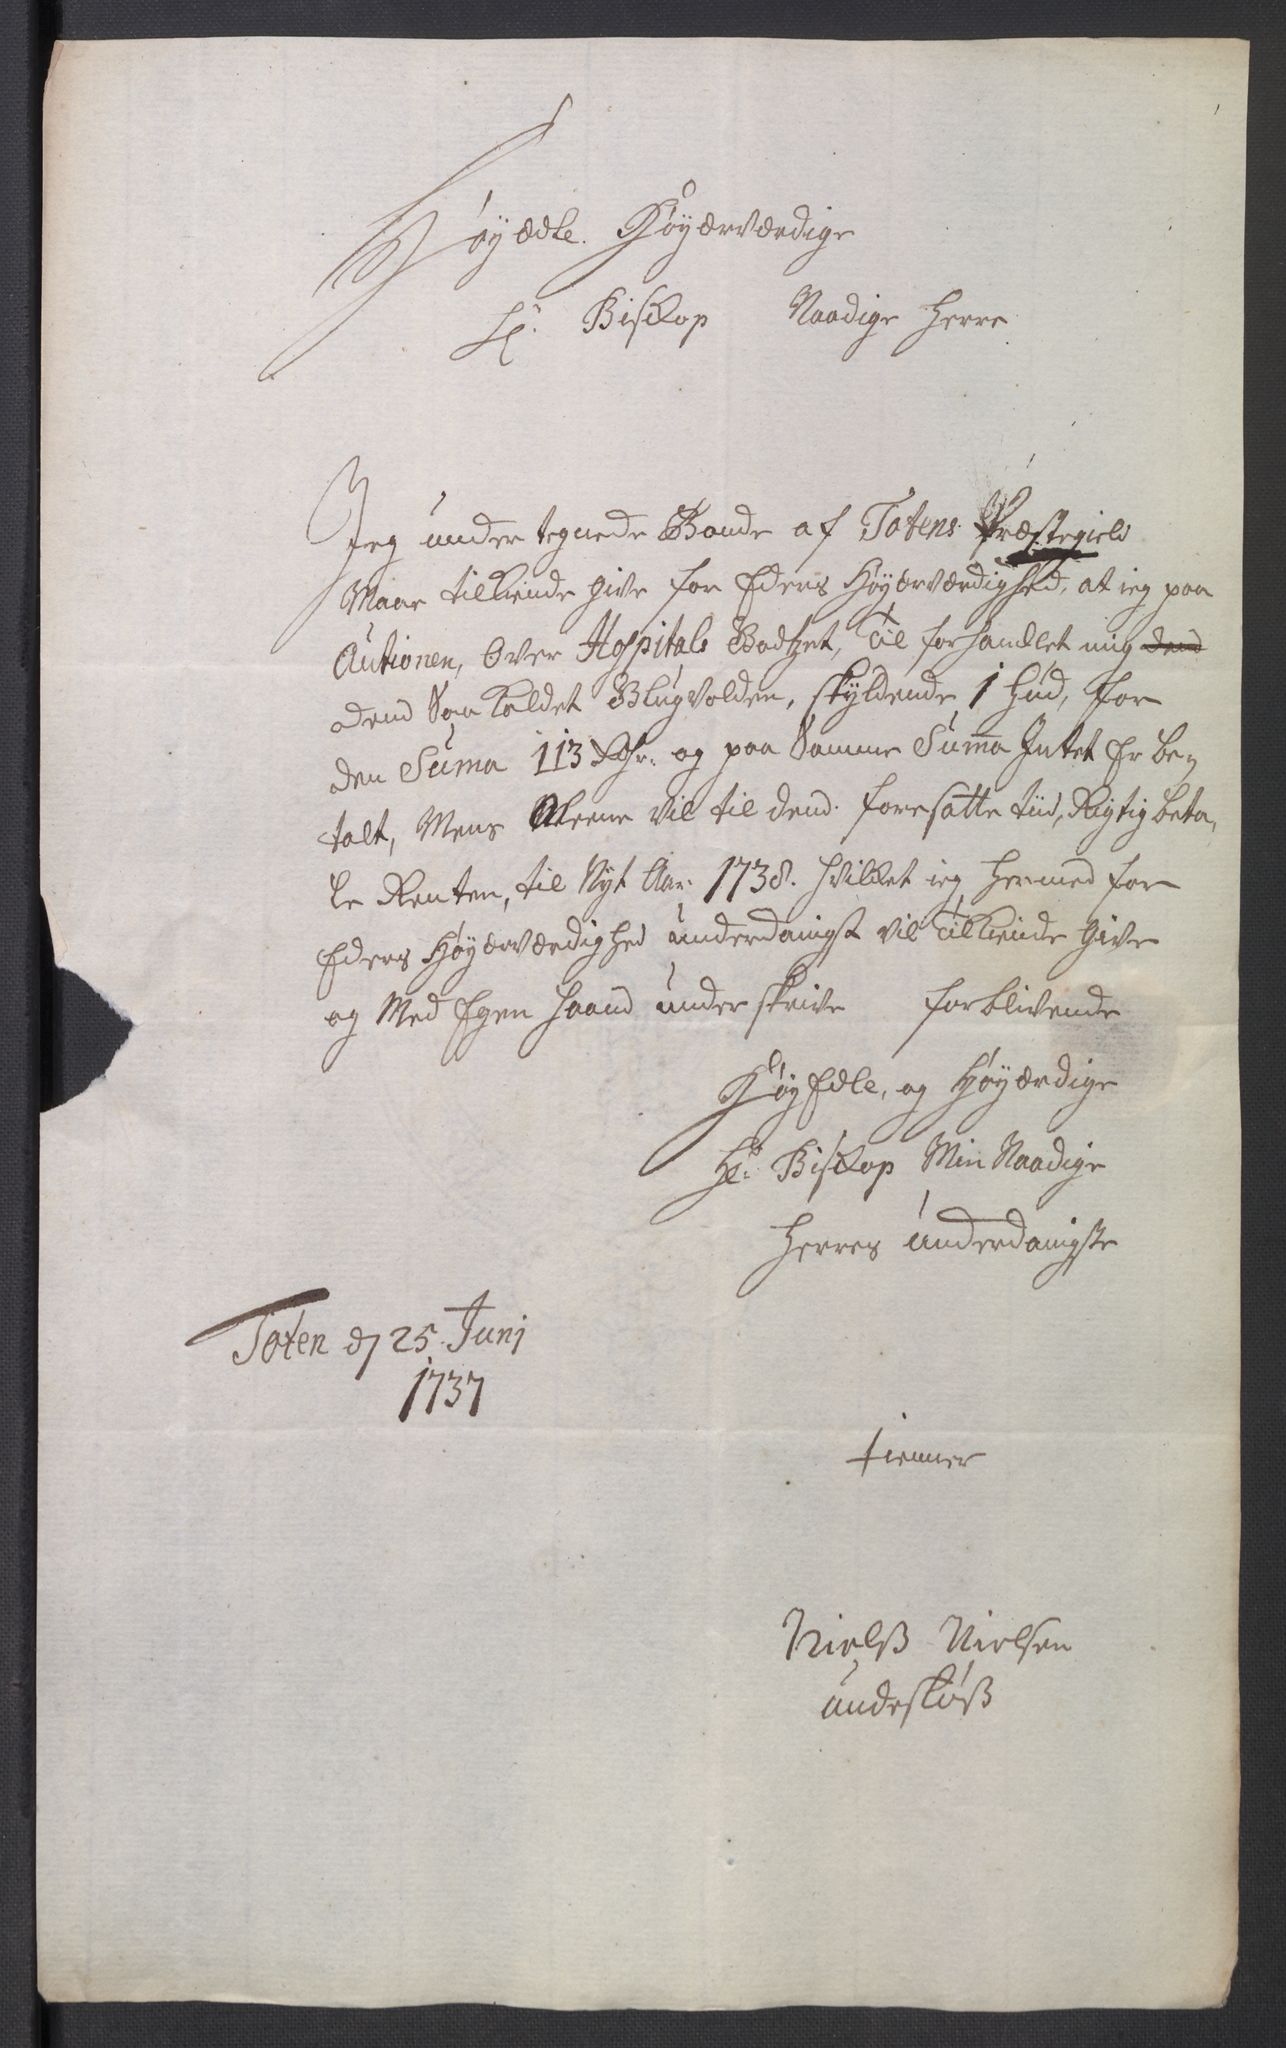 Høyædle. Høyærværdige
Hr. Biskop Naadige Herre
Jeg under tegnede Bonde af Totens Præstegield
Maae tilkiende Give for Eders Høyærværdighed, at ieg paa
Auctionen, Over Hospitals Godtzet, Til forhandlet mig dend
dend Saa kaldet Blugvolden, skyldende 1 Hud, for
den Suma 113 Rdr. og paa Samme Suma Intet Er be-
talt, Mens Aleene vil til dend foresatte tiid, Rigtig beta-
le Renten, til Nyt Aar 1738. Hvilket ieg hermed for
Eders Høyærværdighed underdanigst vil Tilkiende Give
og Med Egen Haand under skrive forblivende
HøyEdle, og Høyærdige
Hr. Biskop Min Naadige
Herres underdanigste
Toten d 25 Junj
1737
tienner
Nielß Nielsen